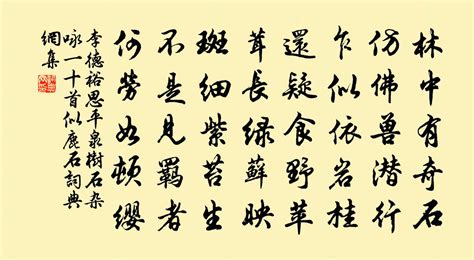 林中有奇石
仿佛兽潜行
乍似依岩桂
還疑食野苹
茸長绿蘚映
斑细紫苔生
不是見羈者
何勞如頓缨
李德裕思平泉樹石杂
咏一十首似鹿石詞典
網集